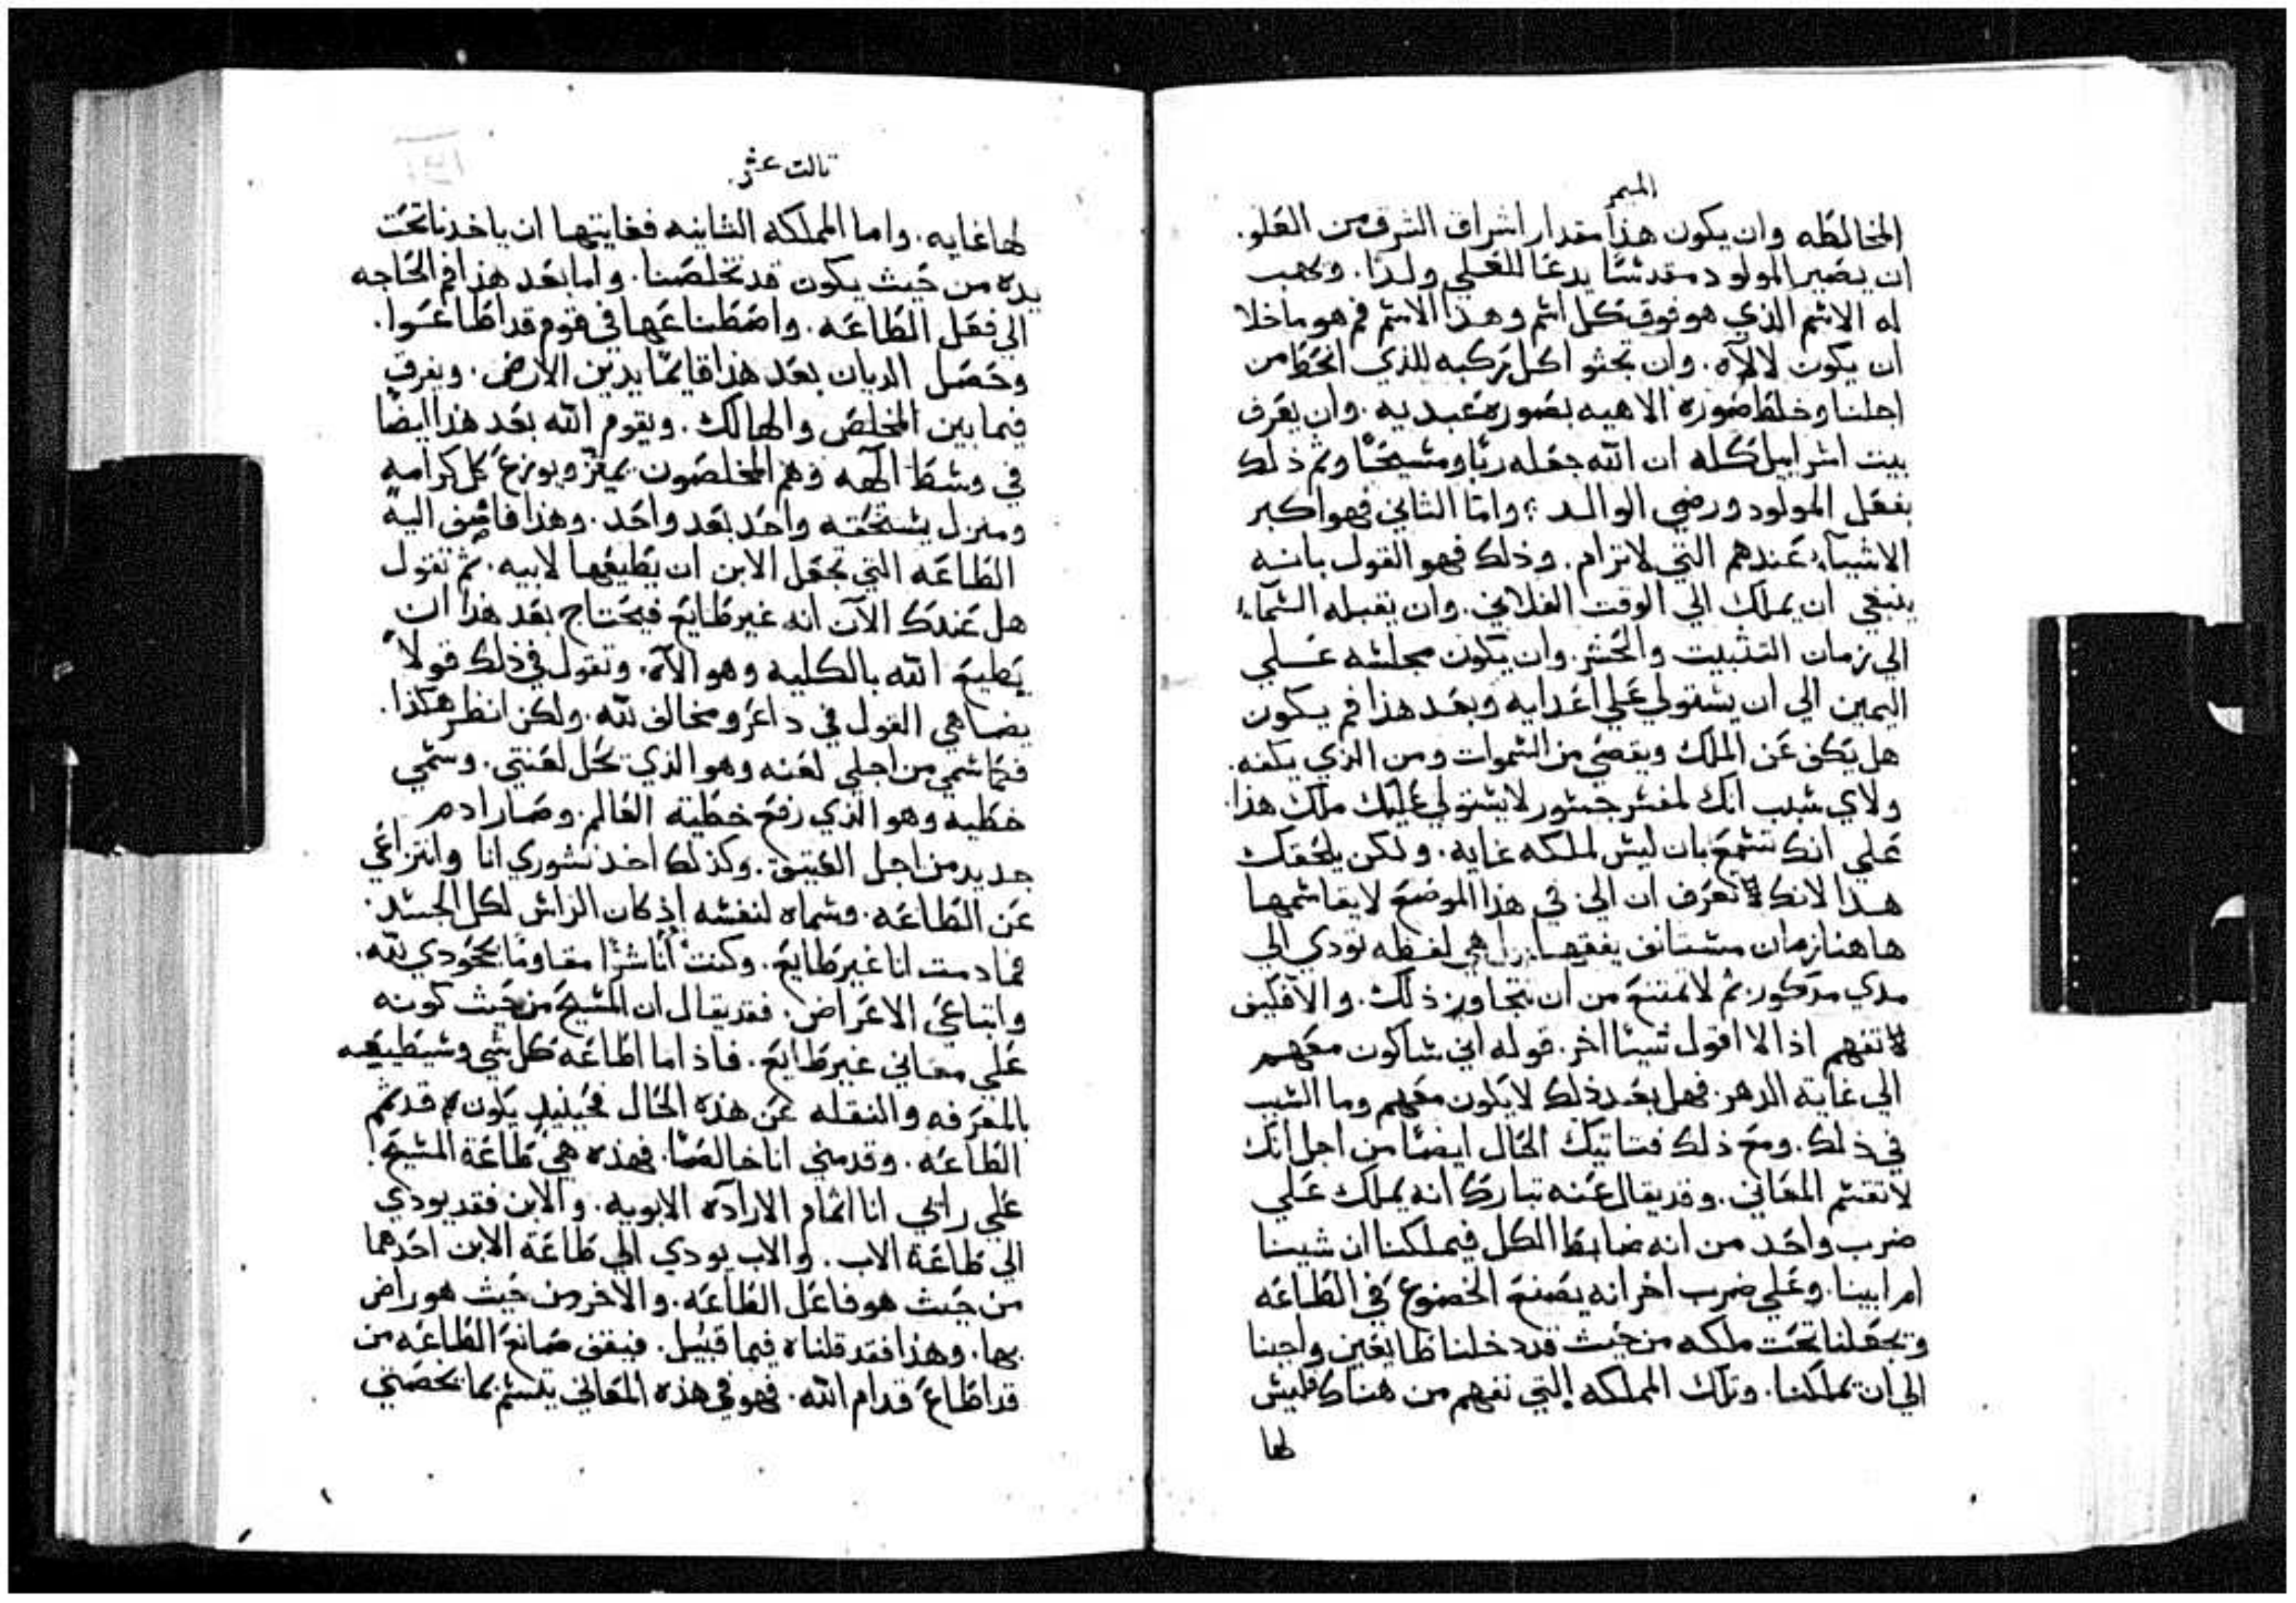 الميمر
المخالطه وان يكون هذا مقدار اشراق الشرف من العلو.
ان يصير المولود مقدسًا يدعا للعلي ولدًا. ويهب
له الاسم الذي هو فوق كل اسم وهذا الاسم فم هو ماخلا
ان يكون لالآه. وان تجثو اكل ركبه للذي انحط من
اجلنا وخلط صورة الاهيه بصورة عبديه. وان يعرف
بيت اسراييل كله ان الله جعله ربًا ومسيحًا وتم ذلك
بفعل المولود ورضي الوالد؛ وامّا الثاني فهو اكبر
الاشيآء عندهم التي لاترام. وذلك فهو القول بانه
ينبغي ان يملك الي الوقت الفلاني. وان يقبله السمآء
الي زمان التثبيت والحشر. وان يكون مجلسه علي
اليمين الي ان يستولي علي اعدايه وبعد هذا فم يكون
هل يكف عن الملك ويقصي من السموات ومن الذي يكفه.
ولاي سبب انك لمفسر جسور لايستولي عليك ملك هذا.
علي انك تسمع بان ليس لملكه غايه. ولكن يلحقك
هذا لانك لا تعرف ان الي في هذا الموضع لايقاسمها
هاهنا زمان مستانف يفقها بل هي لفظه تودي الي
مدي مذكور. ثم لا تمتنع من ان تتجاوز ذلك. والا فكيف
لا تفهم اذا لا اقول شيئًا اخر. قوله اني ساكون معهم
الي غاية الدهر. فهل بعد ذلك لايكون معهم وما السبب
في ذلك. ومع ذلك فتاتيك الحال ايضًا من اجل انك
لاتقسم المعاني. وقد يقال عنه تبارك انه يملك علي
ضرب واحد من انه ضابط الكل فيملكنا ان شينا
ام ابينا. وعلي ضرب اخر انه يصنع الخضوع في الطاعه
وتجعلنا تحت ملكه من حيث قد دخلنا طايعين واجبنا
الي ان يملكنا. وتلك المملكه التي تفهم من هناك فليس
لها
ثالت عشر.
لها غايه. واما المملكه الثانيه فغايتها ان ياخدنا تحت
يده من حيث يكون قد تخلصنا. واما بعد هذا فم الحاجه
الي فعل الطاعه. واصطناعها في قوم قد اطاعوا.
وحصل الديان بعد هذا قايمًا يدين الارض. ويفرق
فيما بين المخلص والهالك. ويقوم الله بعد هذا ايضًا
في وسط الهه وهم المخلصون يميّز ويوزع كل كرامه
ومنزل يستحقه واحد بعد واحد. وهذا فاضف اليه
الطاعه التي تجعل الابن ان يطيعها لابيه. ثم تقول
هل عندك الآن انه غير طايع فيحتاج بعد هذا ان
يطيع الله بالكليه وهو الآه. وتقول في ذلك قولاً
يضاهي القول في داعر ومخالف لله. ولكن انظر هكذا.
فكما سمي من اجلي لعنه وهو الذي تحل لعنتي. وسمي
خطيه وهو الذي رفع خطية العالم. وصار ادم
جديد من اجل العتيق. وكذلك اخذ نشوري انا وانتزاعي
عن الطاعه. وسماه لنفسه اذ كان الراس لكل الجسد.
فمادمت انا غير طايع. وكنت أناشزًا مقاومًا بجحودي لله.
واتباعي الاعراض. فقد يقال ان المسيح من حيث كونه
علي معاني غير طايع. فاذا ما اطاعه كل شي وسيطيعه
بالمعرفه والنقله عن هذه الحال فحينيذٍ يكون قد تمم
الطاعه. وقدمني انا خالصًا. فهذه هي طاعة المسيح
علي راي انا اتمام الارادة الابويه. والابن فقد يودي
الي طاعة الاب. والاب يودي الي طاعة الابن احدهما
من حيث هو فاعل الطاعه. والاخر من حيث هو راض
بها. وهذا فقد قلناه فيما قبيل. فيقف صانع الطاعه من
قد اطاع قدام الله. فهو في هذه المعاني يتسم بما يخصني